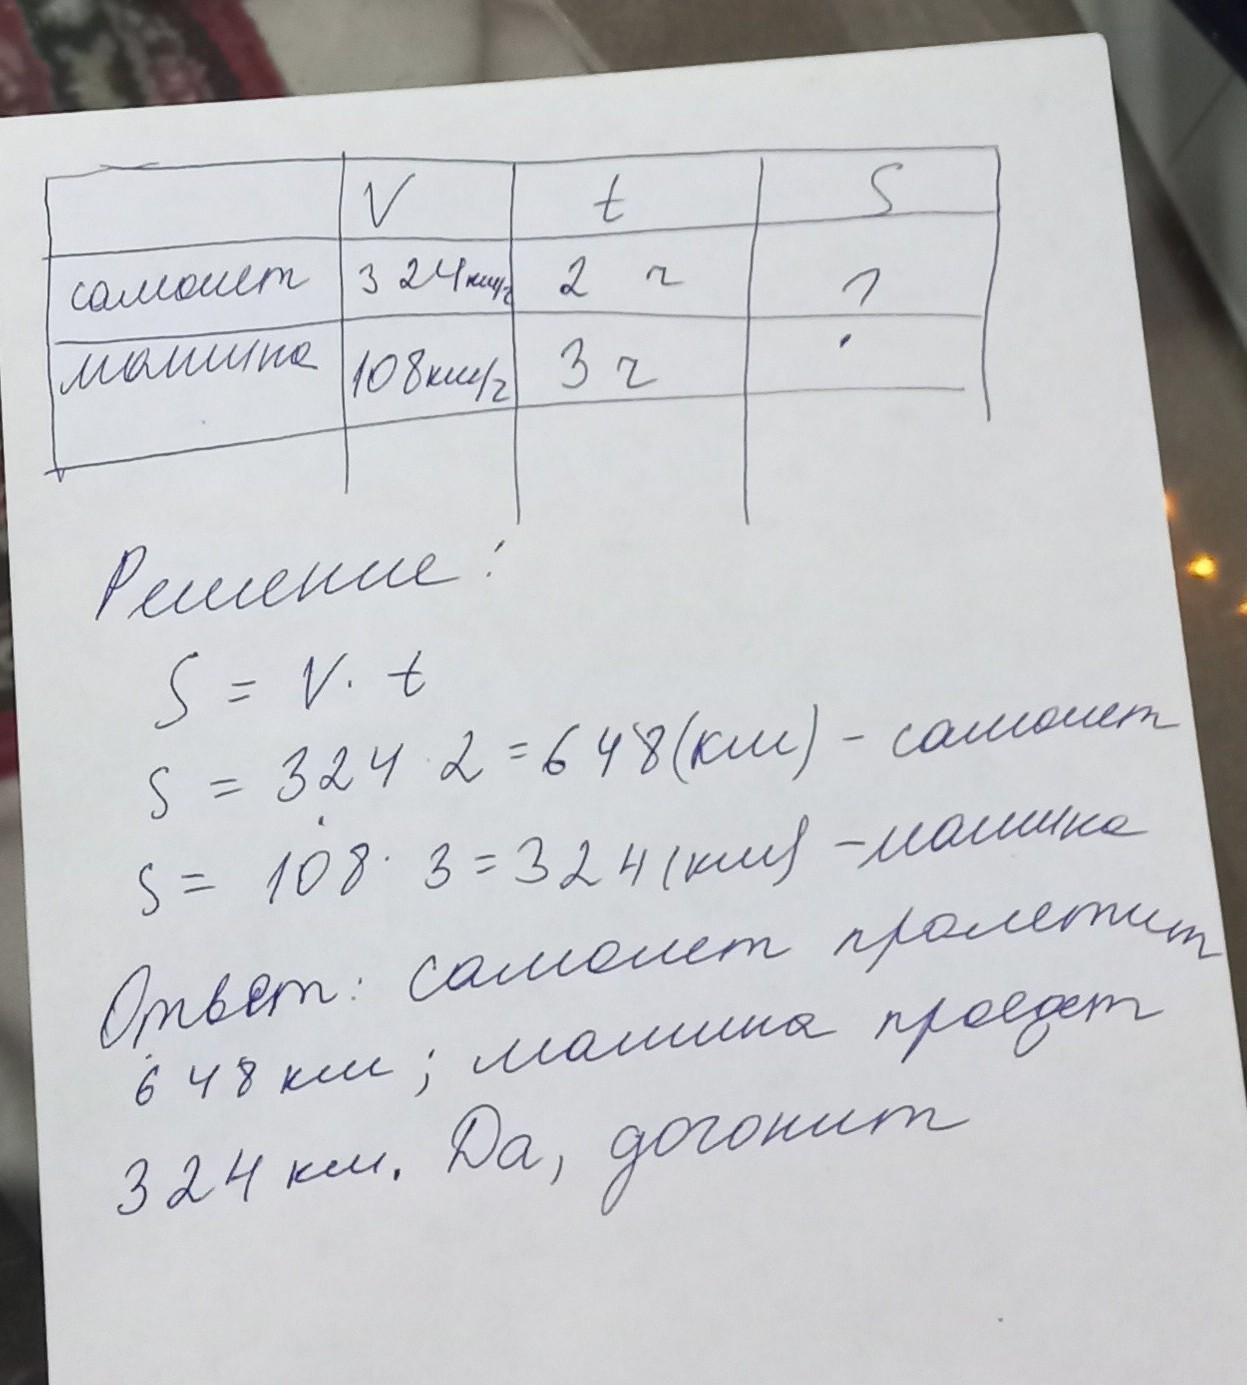 V t S
самолет 324км/ч 2 ч ?
машина 108км/ч 3 ч
Решение:
S = V · t
S = 324 · 2 = 648 (км) - самолет
S = 108 · 3 = 324 (км) - машина
Ответ: самолет пролетит
648 км; машина проедет
324 км. Да, догонит